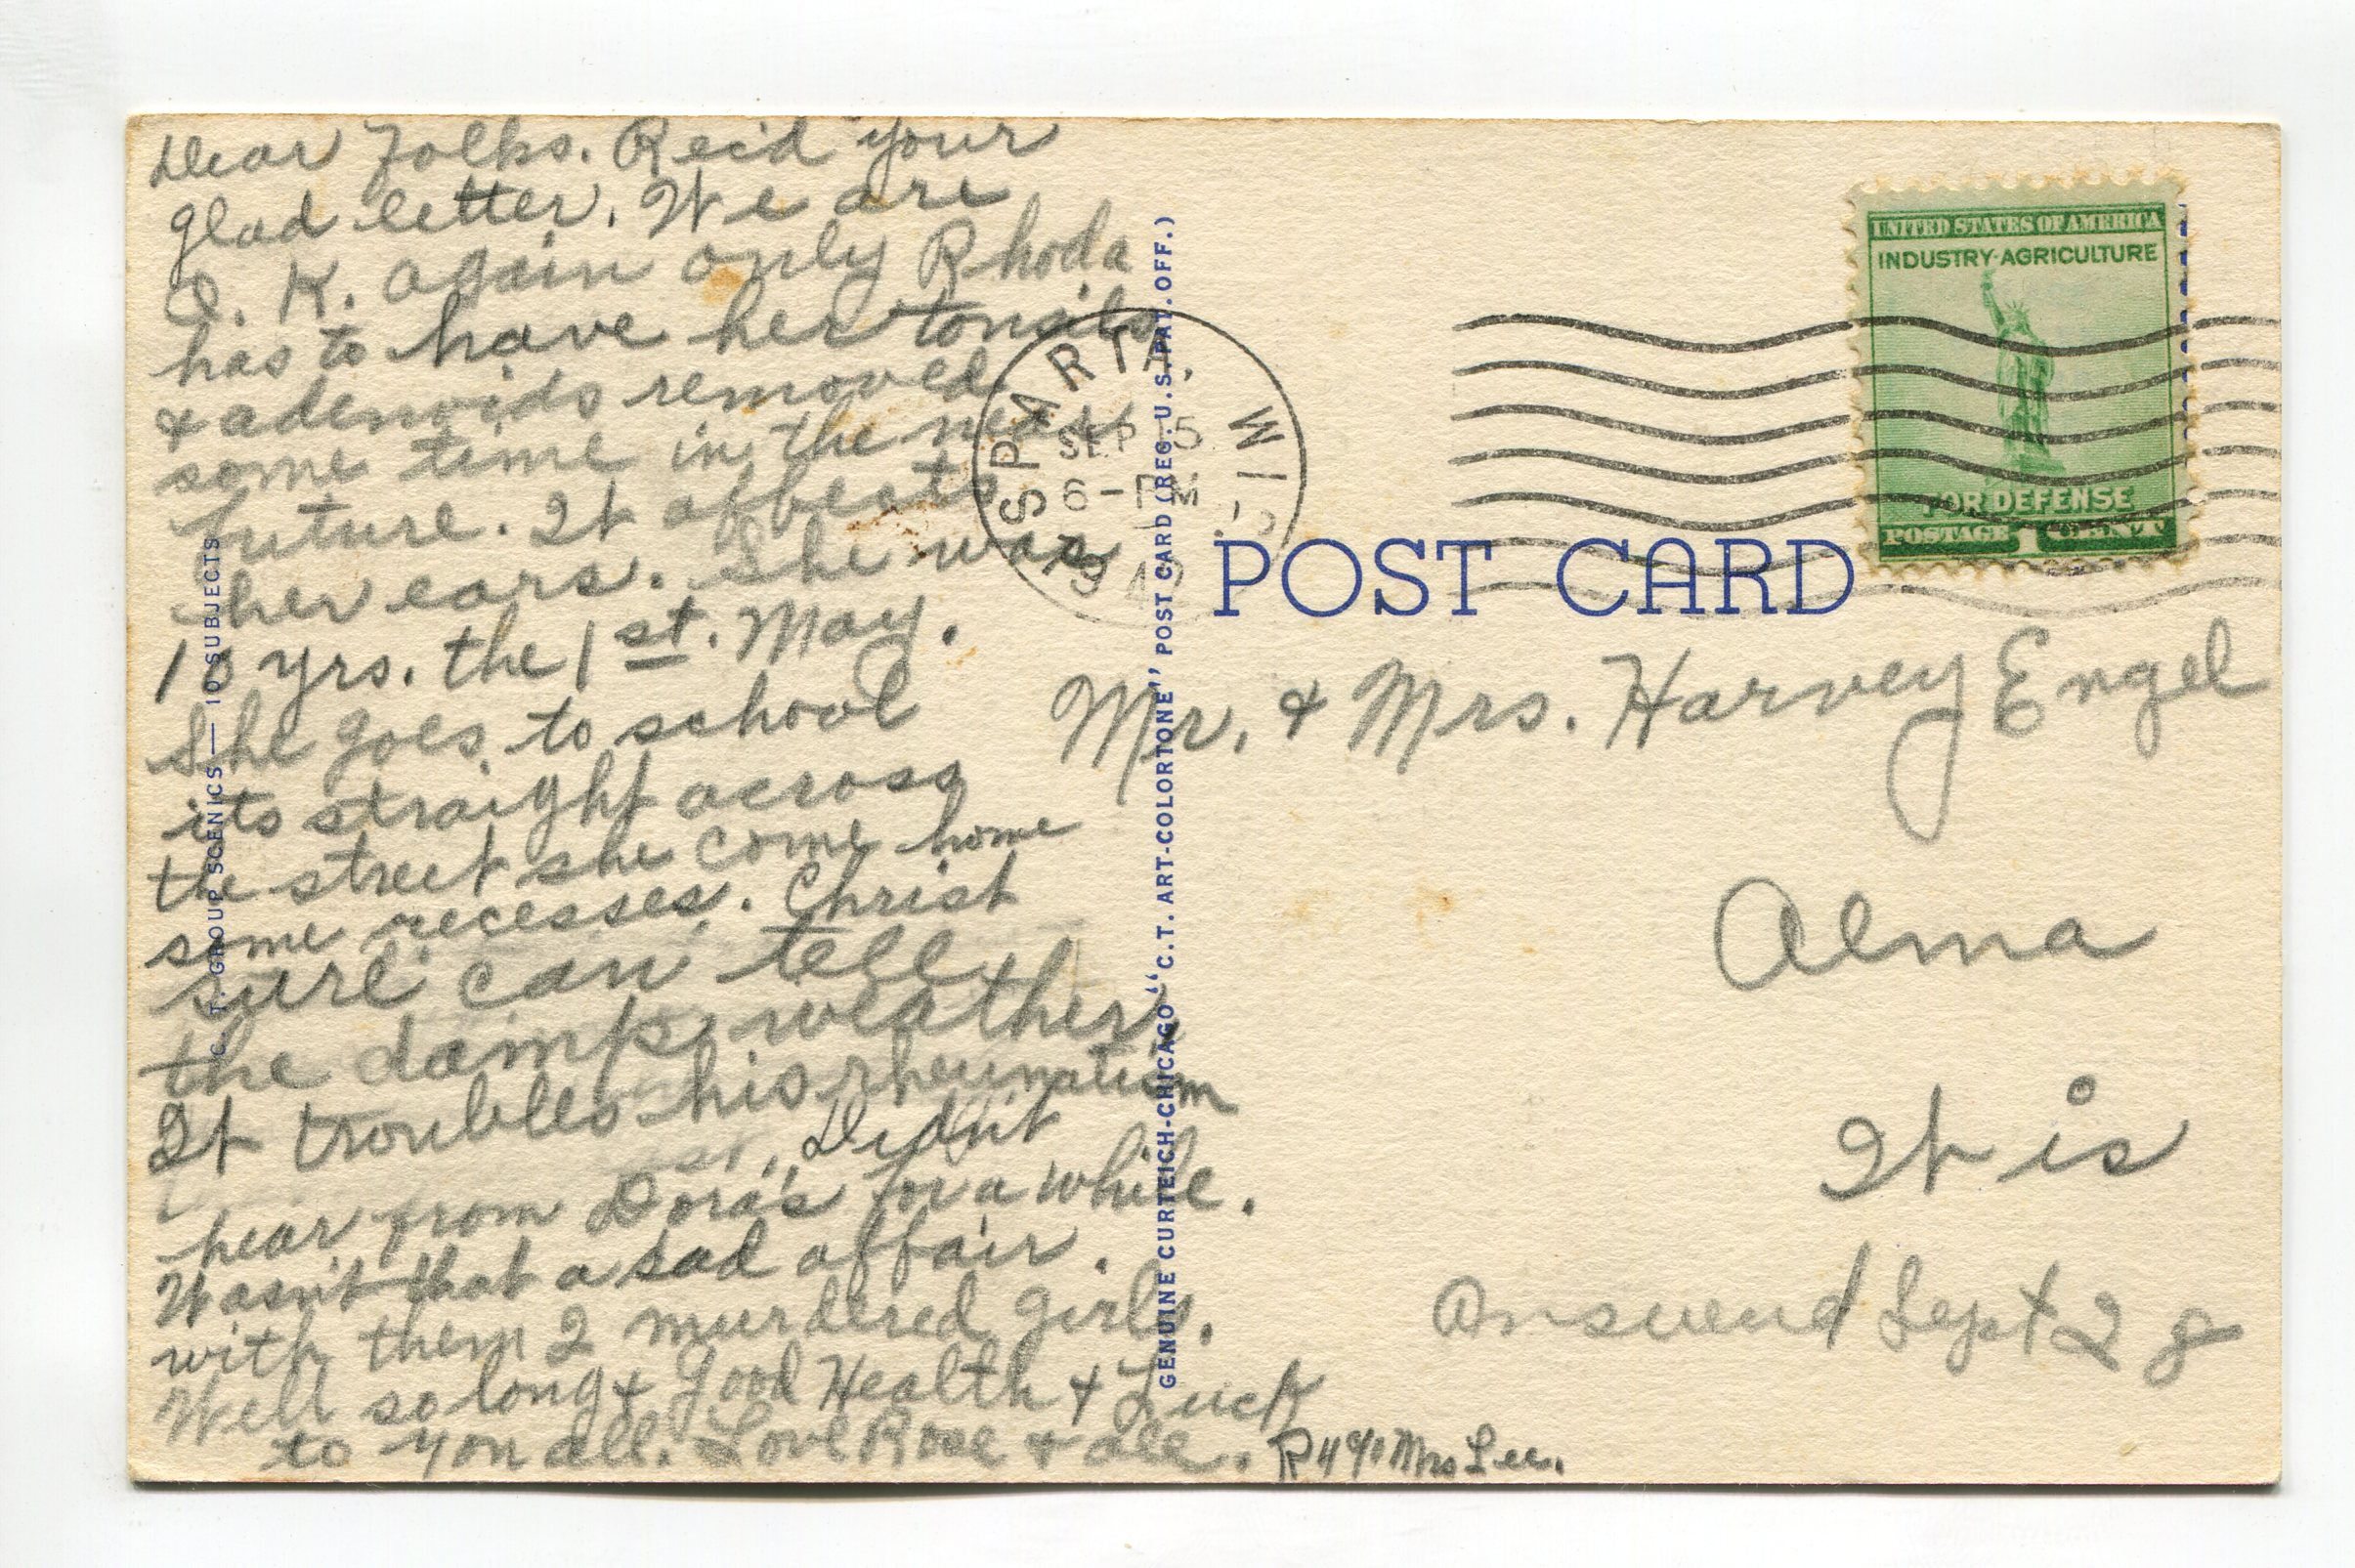 Dear Folks. Rec'd your
glad letter. We are
O. K. again only Rhoda
has to have her tonsils
& adenoids removed
some time in the near
future. It affects
her ears. She was
10 yrs. the 1st. May.
She goes to school
its straight across
the street she come home
some recesses. Christ
sure can tell
the damp weather.
It troubles his rheumatism
Didn't
hear from Dora's for a while.
Wasn't that a sad affair.
with them 2 murdered girls.
Well so long & Good Health & Luck
to you all. Love Rose & all.
R 4 c/o Mrs Lee.
C. T. GROUP SCENICS — 10 SUBJECTS
GENUINE CURTEICH-CHICAGO "C.T. ART-COLORTONE" POST CARD (REG. U.S. PAT. OFF.)
SPARTA, WIS.
SEP 15
6-PM
194
UNITED STATES OF AMERICA
INDUSTRY·AGRICULTURE
FOR DEFENSE
POSTAGE 1 CENT
POST CARD
Mr. & Mrs. Harvey Engel
Alma
It is
Answend Sept 28